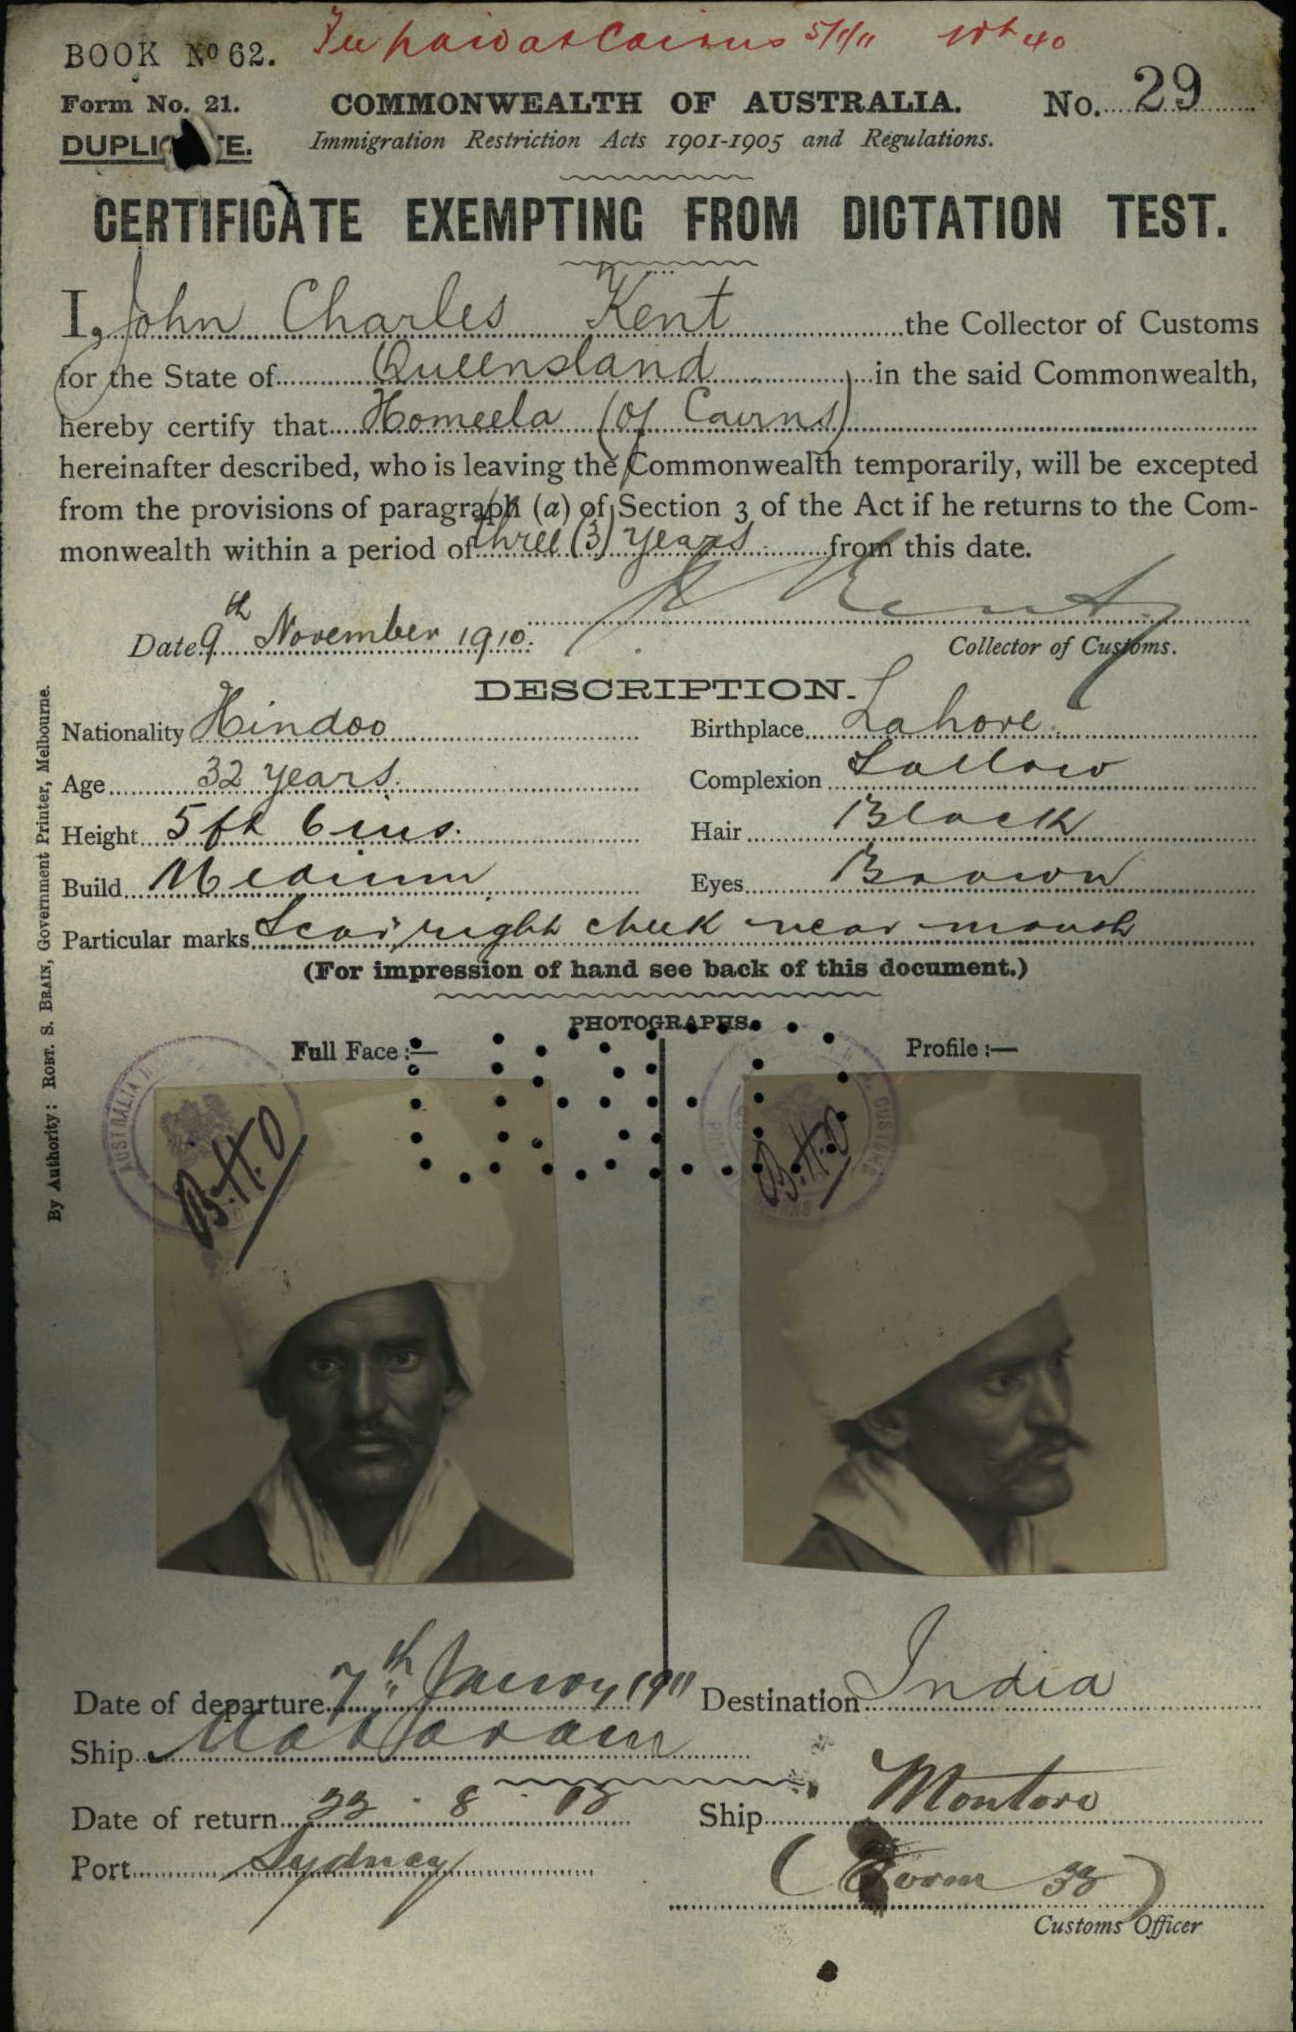 Fee paid at Cairns 5/1/11 No 40
BOOK No 62.
Form No. 21.
COMMONWEALTH OF AUSTRALIA.
No. 29
DUPLI E.
Immigration Restriction Acts 1901-1905 and Regulations.
CERTIFICATE EXEMPTING FROM DICTATION TEST.
I, John Charles Kent the Collector of Customs
for the State of Queensland in the said Commonwealth,
hereby certify that Homeela (of Cairns)
hereinafter described, who is leaving the Commonwealth temporarily, will be excepted
from the provisions of paragraph (a) of Section 3 of the Act if he returns to the Com-
monwealth within a period of three (3) years from this date.
Kent
Date 9th November 1910.
Collector of Customs.
DESCRIPTION.
Nationality Hindoo
Birthplace Lahore
Age 32 years.
Complexion Sallow
Height 5 ft 6 ins.
Hair Black
Build Medium
Eyes Brown
Particular marks Scar right cheek near mouth
(For impression of hand see back of this document.)
PHOTOGRAPHS.
Full Face :—
Profile :—
AUSTRALIA
CUSTOMS
B.H.O
B.H.O
By Authority: ROBT. S. BRAIN, Government Printer, Melbourne.
Date of departure 7th January 1911
Destination India
Ship Mataram
Date of return 22 . 8 . 13
Ship Montoro
Port Sydney
(Form 32)
Customs Officer